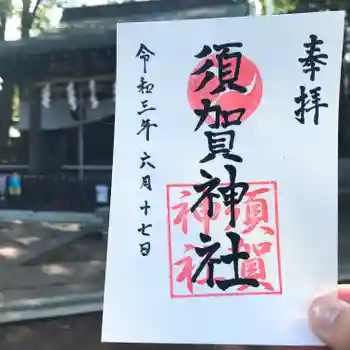 奉拝
須賀神社
須賀
神社
令和三年六月十七日